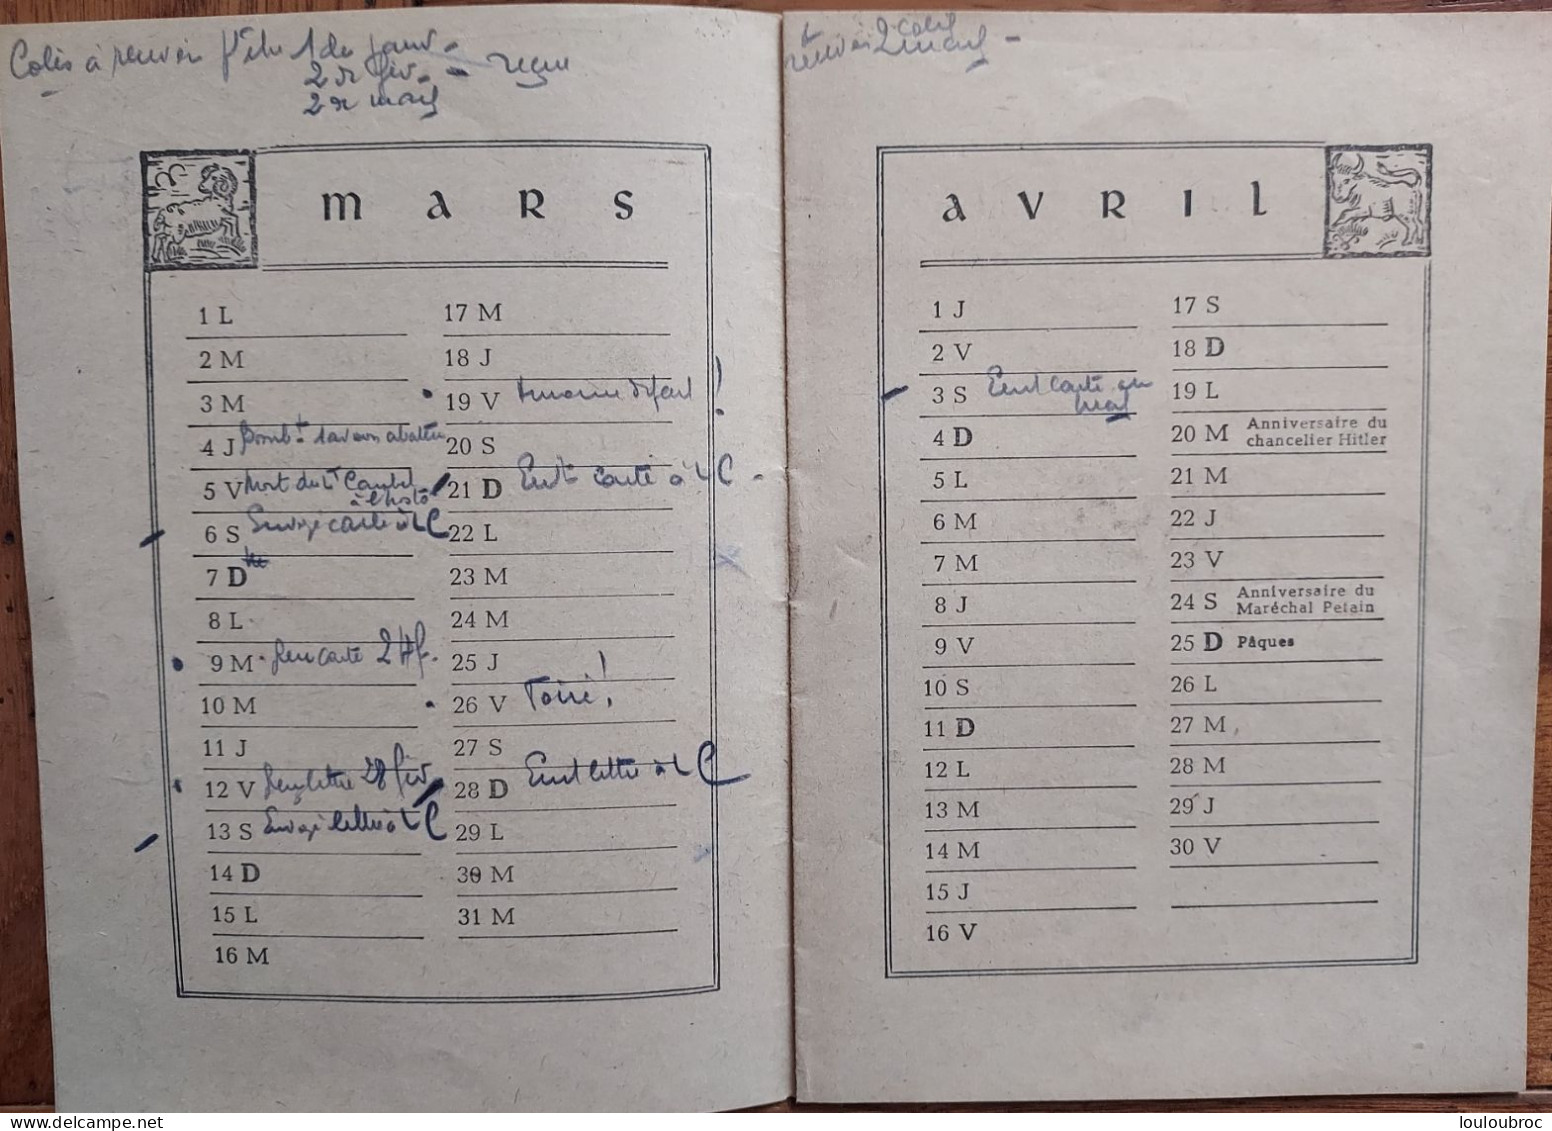 Colis à recevoir 1 de janv -
2 de fév. - reçu
2 de mars
MARS
1 L
2 M
3 M
4 J Bombt 1 avion abattu
5 V Mort du Lt
à l'hosto
6 S Envoyé carte à C
7 D
8 L
9 M Reçu carte 24 f.
10 M
11 J
12 V Reçu lettre 28 fév
13 S Envoyé lettre à C
14 D
15 L
16 M
17 M
18 J
19 V !
20 S
21 D Ecrit carte à C -
22 L
23 M
24 M
25 J
26 V !
27 S
28 D Ecrit lettre à C
29 L
30 M
31 M
recevoir 2 colis
mars -
AVRIL
1 J
2 V
3 S Ecrit carte
4 D
5 L
6 M
7 M
8 J
9 V
10 S
11 D
12 L
13 M
14 M
15 J
16 V
17 S
18 D
19 L
20 M Anniversaire du
chancelier Hitler
21 M
22 J
23 V
24 S Anniversaire du
Maréchal Petain
25 D Pâques
26 L
27 M
28 M
29 J
30 V
louloubroc